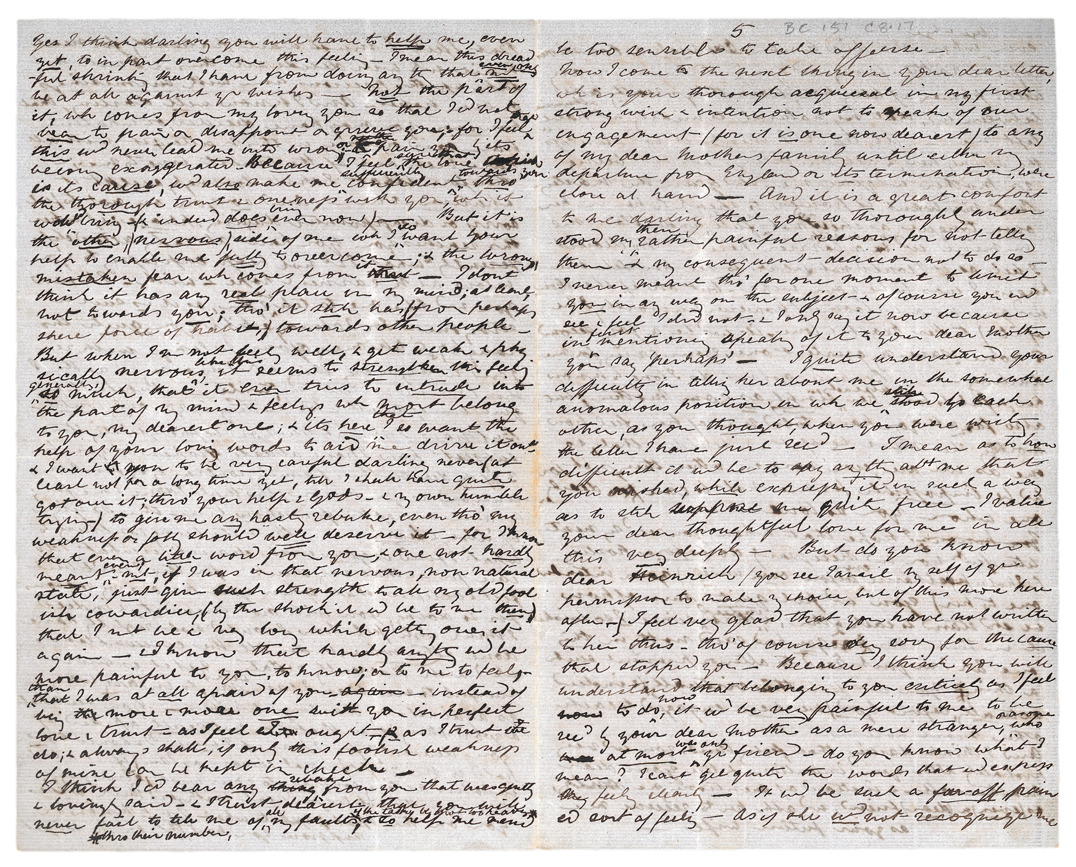 Yes I think darling you will have to help me, even
yet to in part overcome this feeling. I mean this dread
-ful shrink that I have from doing any to that
be at all against yr wishes — Not the part of
it, wh comes from my loving you so that I'd not
bear to pain or disappoint or grieve you; for I feel
this wd never lead me into wrong its
being exaggerated. Because I feel the love
is its cause, wd also make me sufficiently confident thro'
the thorough trust & oneness with you,
wd bring (& indeed does even now) — But it is
the "other, nervous) side" of me wh I want your
help to enable me fully to overcome — ; & the wrong
mistaken fear wh comes from that — I don't
think it has any real place in my mind, at least,
not towards you; tho' it still has from perhaps
shere force of habit, towards other people —
But when I'm not feelg well, & get weak & phy
sically nervous, it seems to strengthen this feelg
so much, that it even tries to intrude into
the part of my mind & feelings wh most belong
to you, my dearest one; & its here I so want the
help of your lovg words to aid me drive it out
& I want you to be very careful darling never (at
least not for a long time yet, till I shall have quite
got over it, thro' your help & Gods — & my own humble
trying) to give me any hasty rebuke, even tho' my
weakness or fault should well deserve it — for I know
that even a little word from you, & one not hardly
meant, if I was in that nervous, non natural
state, just give such strength to all my old fool
ish cowardice, (by the shock it wd be to me then)
that I mt be a very long while gettg over it
again — & I know that hardly anytg wd be
more painful to you, to know, or to me to feel,
than I was at all afraid of you again — instead of
being the more & more one with you in perfect
love & trust — as I feel I ought — & as I trust
do; & always shall, if only this foolish weakness
of mine can be kept in check —
I think I'd bear any rebuke from you that was quietly
& lovingly said — & I trust dearest that you will
never fail to tell me of my faults, & to help me mend
thro their number,
5
BC 151 C8.17
be too sensible to take offense —
Now I come to the next thing in your dear letter,
wh is your thorough acquiescal in my first
strong wish & intention not to speak of our
engagement (for it is one now dearest) to any
of my dear Mothers family until either my
departure from England or its termination, were
close at hand — And it is a great comfort
to me darling that you so thoroughly under
stood my rather painful reasons for not tellg
them & my consequent decision not to do so —
I never meant tho' for one moment to limit
you in any way on the subject — & of course you wd
see & feel I did not. & I only say it now because
in first mentiong speakg of it to your dear Mother
you say 'perhaps' — I quite understand your
difficulty in tellg her about me in the somewhat
anomalous position in wh we stood to each
other, as you thought, when you were writg
the letter I have just recd — I mean as to how
difficult it wd be to say as thy abt me that
you wished, while expressg it in such a way
as to still suppose me quite free — I value
your dear thoughtful love for me in all
this very deeply — But do you know
dear Heinrich (you see I avail myself of yr
permission to make my choice, but of this more here
after —) I feel very glad that you have not written
to her thus — tho' of course vy sorry for the cause
that stopped you — Because I think you will
understand that belonging to you entirely as I feel
to do, now, it wd be very painful to me to be
recd by your dear mother as a mere stranger,
at most yr friend — do you know what I
mean? I can't get quite the words that wd express
my feelg clearly — It wd be such a far-off pain
ed sort of feelg — as if she wd not recognize me